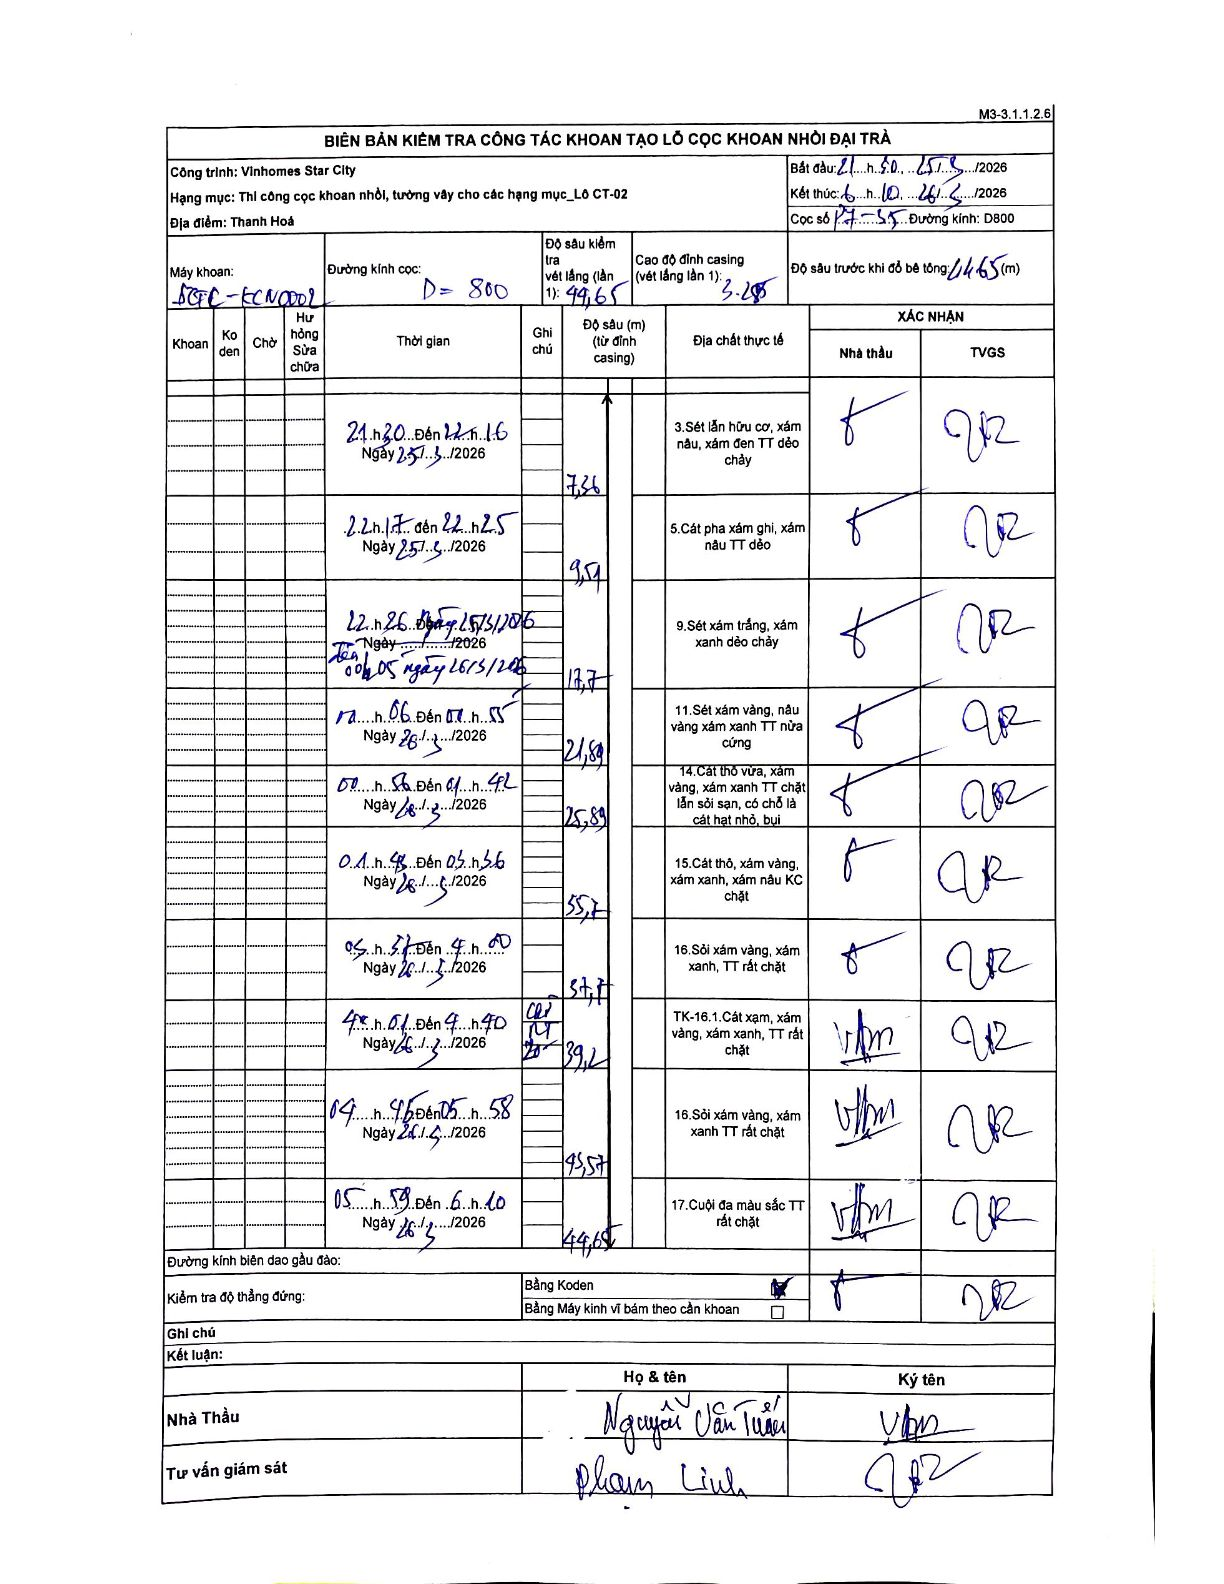 M3-3.1.1.2.6
BIÊN BẢN KIỂM TRA CÔNG TÁC KHOAN TẠO LỖ CỌC KHOAN NHỒI ĐẠI TRÀ
Công trình: Vinhomes Star City
Hạng mục: Thi công cọc khoan nhồi, tường vây cho các hạng mục_Lô CT-02
Địa điểm: Thanh Hoá
Bắt đầu: 21 h 30, 25/3/2026
Kết thúc: 6 h 10, 26/3/2026
Cọc số P7-35 Đường kính: D800
Máy khoan:
Đường kính cọc: D = 800
Độ sâu kiểm tra vét lắng (lần 1): 44,65
Cao độ đỉnh casing (vét lắng lần 1):
Độ sâu trước khi đổ bê tông: 44.65 (m)
Khoan
Ko den
Chờ
Hư hỏng Sửa chữa
Thời gian
Ghi chú
Độ sâu (m) (từ đỉnh casing)
Địa chất thực tế
XÁC NHẬN
Nhà thầu
TVGS
21.h30...Đến 22.h.16
Ngày 25/.3./2026
7,36
3.Sét lẫn hữu cơ, xám nâu, xám đen TT dẻo chảy
22.h.17.. đến 22..h25
Ngày 25/.3../2026
9,51
5.Cát pha xám ghi, xám nâu TT dẻo
22..h 26 ..Đến Ngày 25/3/2026
Ngày ...../....../2026
Đến
00h05 ngày 26/3/2026
17,7
9.Sét xám trắng, xám xanh dẻo chảy
00....h.06.Đến 00..h..55
Ngày 26./.3../2026
21,89
11.Sét xám vàng, nâu vàng xám xanh TT nửa cứng
00....h..56.Đến 01..h..42
Ngày 26/..3../2026
25,89
14.Cát thô vừa, xám vàng, xám xanh TT chặt lẫn sỏi sạn, có chỗ là cát hạt nhỏ, bụi
01..h..43...Đến 03..h36
Ngày 26./...3./2026
15.Cát thô, xám vàng, xám xanh, xám nâu KC chặt
03..h..37..Đến ..4..h..00
Ngày 26./...3./2026
37,7
16.Sỏi xám vàng, xám xanh, TT rất chặt
4..h.01..Đến 4...h.40
Ngày 26./..3../2026
39,2
TK-16.1.Cát xạm, xám vàng, xám xanh, TT rất chặt
04.....h...45.Đến 05...h...58
Ngày 26./.3.../2026
43,57
16.Sỏi xám vàng, xám xanh TT rất chặt
05.....h..59.Đến ..6..h.10
Ngày 26/..3../2026
44,65
17.Cuội đa màu sắc TT rất chặt
Đường kính biên dao gầu đào:
Kiểm tra độ thẳng đứng:
Bằng Koden
Bằng Máy kinh vĩ bám theo cần khoan
Ghi chú
Kết luận:
Họ & tên
Ký tên
Nhà Thầu
Nguyễn Văn Tuấn
Tư vấn giám sát
Phạm Linh